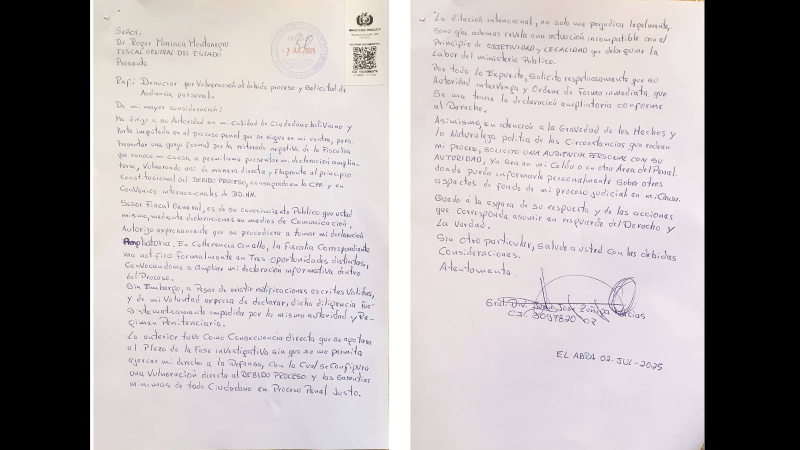 Señor:
Dr. Roger Mariaca Montenegro
FISCAL GENERAL DEL ESTADO
Presente.
Ref.: Denunciar por Vulneración al debido proceso y Solicitud de
Audiencia personal.
De mi mayor consideración:
Me dirijo a su Autoridad en mi calidad de Ciudadano boliviano y
Parte imputada en el proceso penal que se sigue en mi contra, para
Presentar una queja formal por la reiterada negativa de la Fiscalía
que conoce mi causa a permitirme presentar mi declaración amplia-
toria, Vulnerando así de manera directa y Flagrante al principio
constitucional del DEBIDO PROCESO, consagrado en la CPE y en
Convenios internacionales de DD.HH.
Señor Fiscal General, es de su conocimiento Público que usted
mismo, mediante declaraciones en medios de Comunicación,
Autorizo expresamente que se procediera a tomar mi declaración
Ampliatoria. En Coherencia con ello, la Fiscalía Correspondiente
me notificó Formalmente en Tres oportunidades distintas,
Convocandome a Ampliar mi declaración informativa dentro
del Proceso.
Sin Embargo, a Pesar de existir notificaciones escritas Validas,
y de mi Voluntad expresa de declarar, dicha diligencia Fue
Sistematicamente impedida por la misma autoridad y Re-
gimen Penitenciario.
Lo anterior tuvo como Consecuencia directa que se agotara
el Plazo de la Fase investigativa sin que se me permita
ejercer mi derecho a la Defensa, con lo Cual se Configura
una Vulneración directa al DEBIDO PROCESO y las Garantías
minimas de todo Ciudadano en Proceso Penal Justo.
MINISTERIO PÚBLICO
JUL 2025
La dilación intencional, no solo me perjudica legalmente,
Sino que ademas revela una actuación incompatible con el
Principio de OBJETIVIDAD y LEGALIDAD que debe guiar la
Labor del ministerio Público.
Por todo lo Expuesto, Solicito respetuosamente que su
Autoridad intervenga y Ordene de Forma inmediata que
Se me tome la declaración ampliatoria conforme
al Derecho.
Asimismo, en atención a la Gravedad de los Hechos y
la Naturaleza politica de las Circunstancias que rodean
mi proceso, SOLICITO UNA AUDIENCIA PERSONAL CON SU
AUTORIDAD, Ya sea en mi Celda o en otra Area del Penal.
donde pueda informarle personalmente Sobre otros
aspectos de fondo de mi proceso judicial en mi Causa.
Quedo a la espera de su respuesta y de las acciones
que corresponda asumir en resguardo del Derecho y
La Verdad.
Sin otro particular, saludo a usted con las debidas
Consideraciones.
Atentamente.
Gral. Div. Juan José Zúñiga Macias
EL ABRA 02-JUL-2025